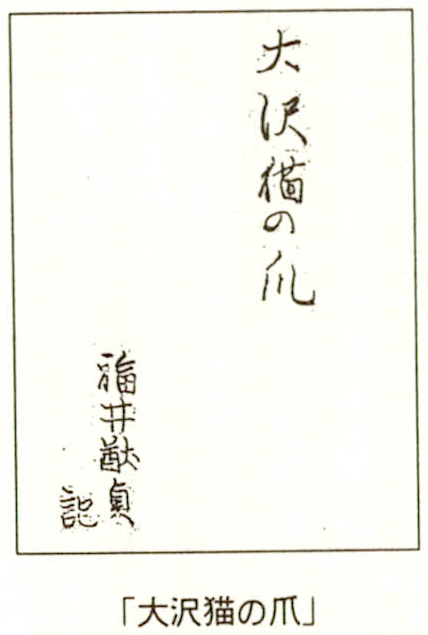 大沢猫の爪
福井猷貞
記
「大沢猫の爪」